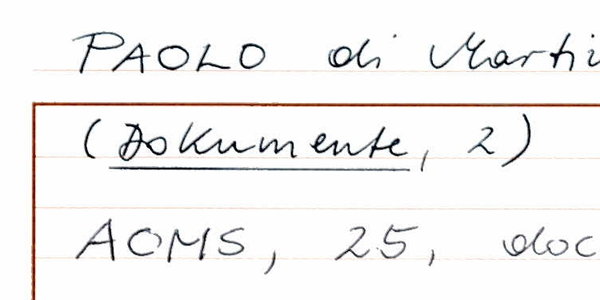 PAOLO di Marti
(Dokumente, 2)
AOMS, 25, doc